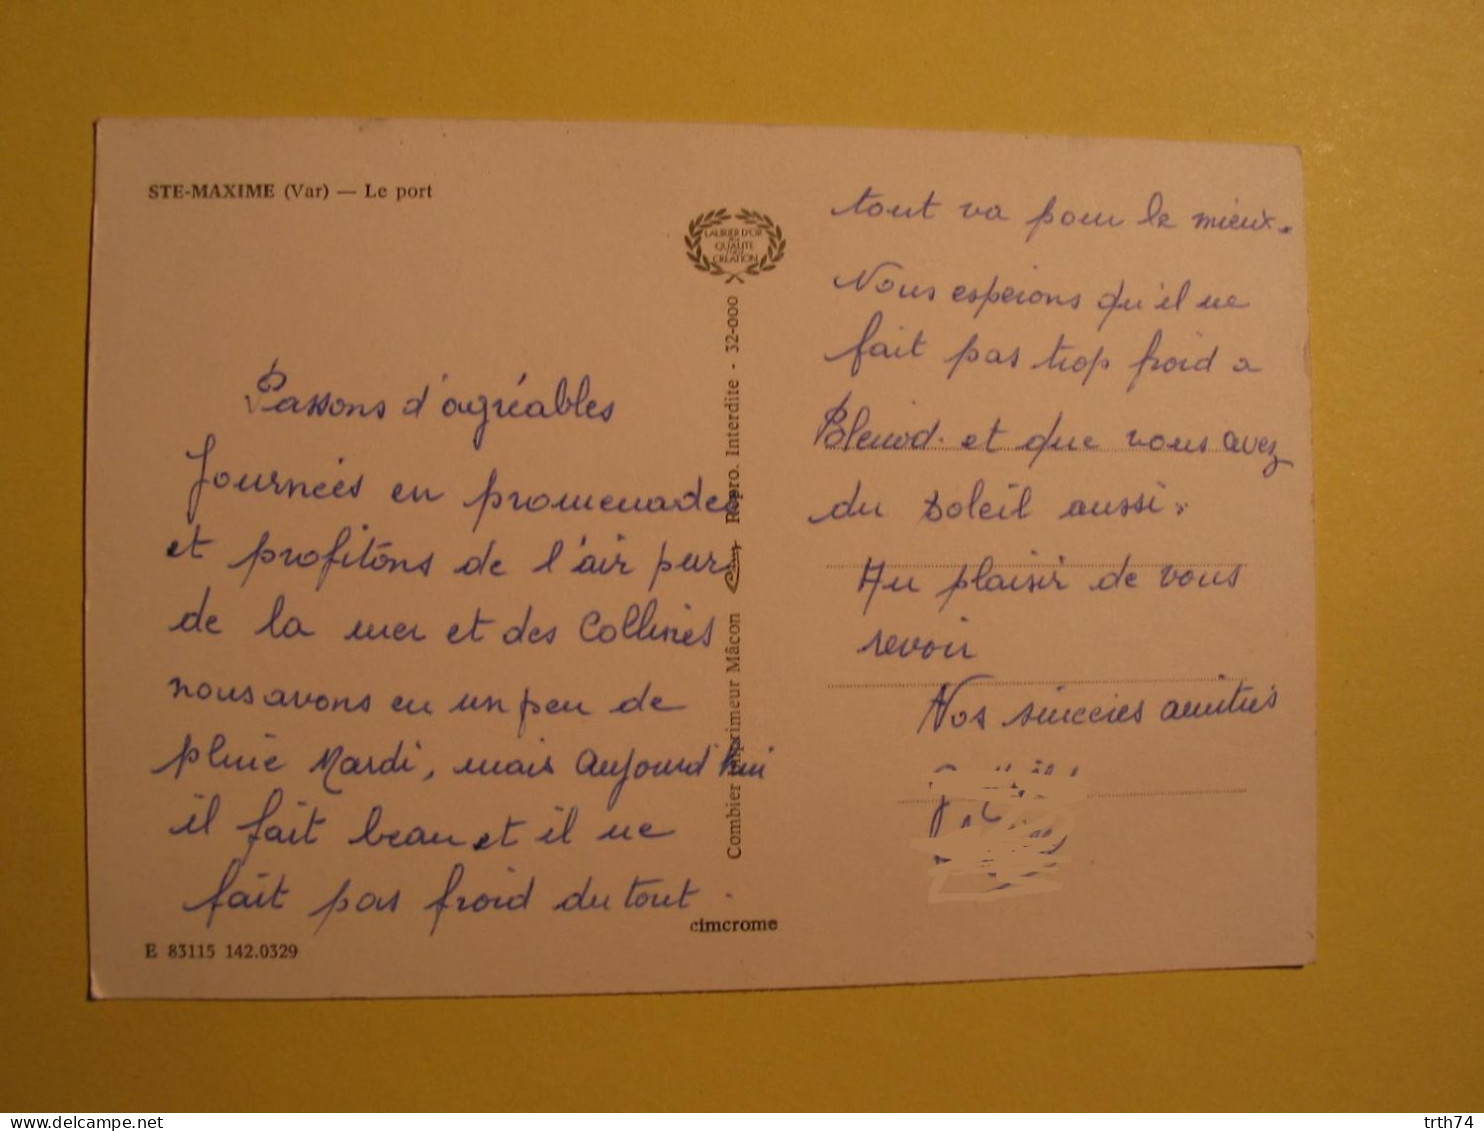 STE-MAXIME (Var) — Le port
Passons d'agréables
Journées en promenades
et profitons de l'air pur
de la mer et des Collines
nous avons eu un peu de
pluie Mardi, mais aujourd'hui
il fait beau et il ne
fait pas froid du tout.
E 83115 142.0329
LAURIER D'OR
DE LA
QUALITÉ
CRÉATION
Combier Imprimeur Mâcon Cim Repro. Interdite - 32-000
cimcrome
tout va pour le mieux.
Nous espérons qu'il ne
fait pas trop froid a
et que vous avez
du Soleil aussi.
Au plaisir de vous
revoir
Nos sincères amitiés
trth74